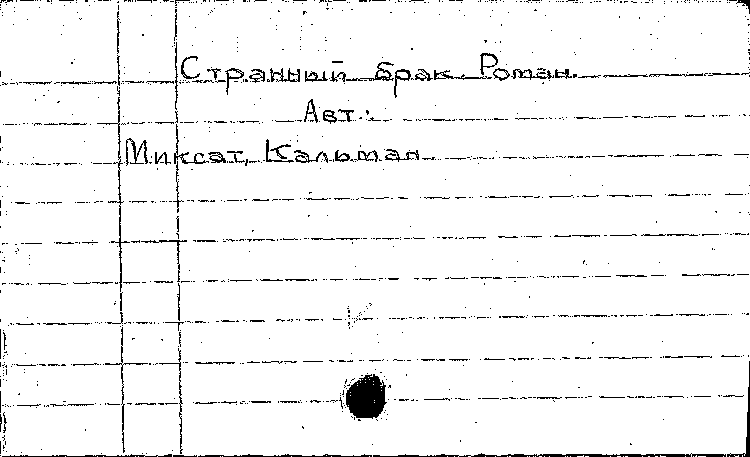 Странный брак. Роман.
Авт.:
Миксат, Кальман.